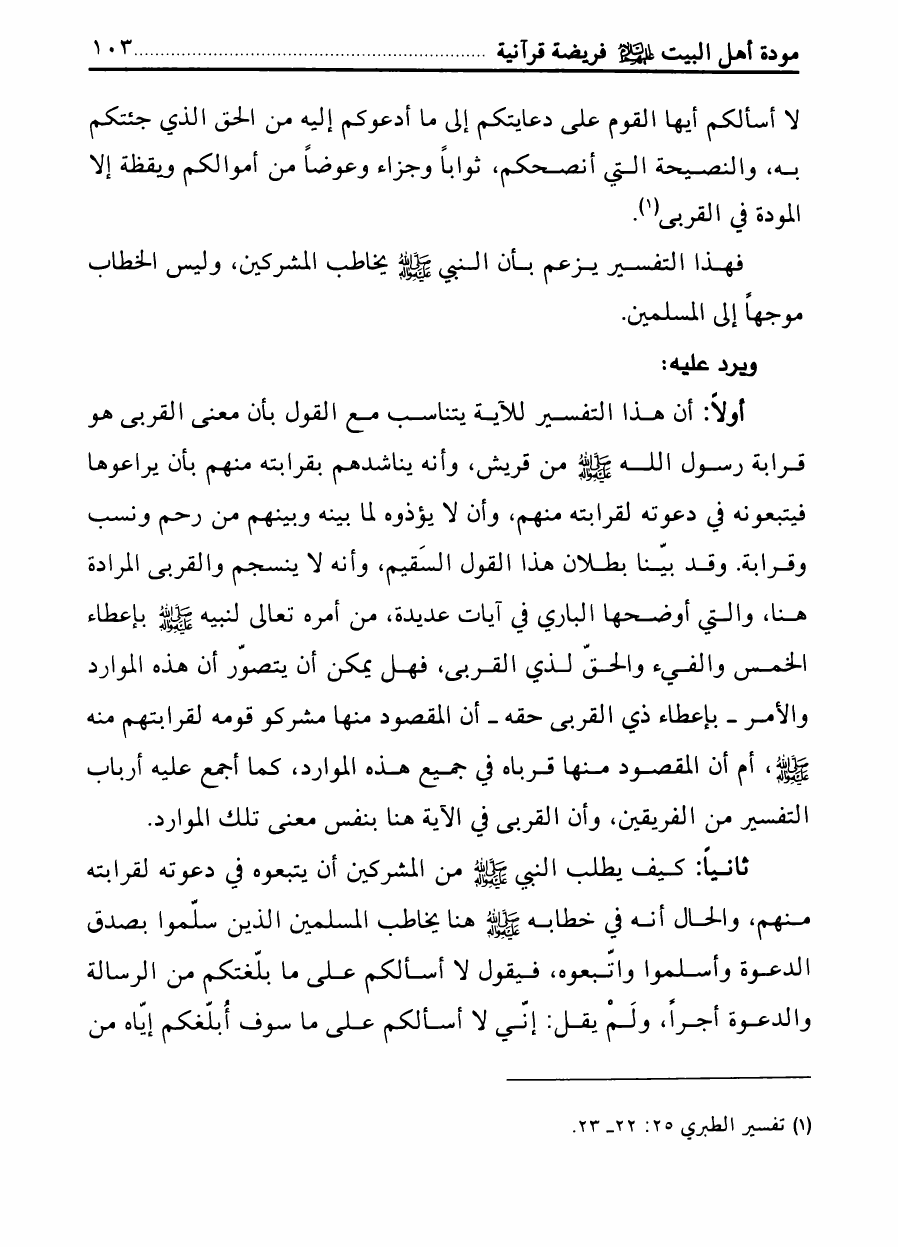 مودة أهل البيت عليهم السلام فريضة قرآنية ................................................................ ١٠٣
لا أسألكم أيها القوم على دعايتكم إلى ما أدعوكم إليه من الحق الذي جئتكم
به، والنصيحة التي أنصحكم، ثواباً وجزاء وعوضاً من أموالكم ويقظة إلا
المودة في القربى(١).
فهذا التفسير يزعم بأن النبي ﷺ يخاطب المشركين، وليس الخطاب
موجهاً إلى المسلمين.
ويرد عليه:
أولاً: أن هذا التفسير للآية يتناسب مع القول بأن معنى القربى هو
قرابة رسول الله ﷺ من قريش، وأنه يناشدهم بقرابته منهم بأن يراعوها
فيتبعونه في دعوته لقرابته منهم، وأن لا يؤذوه لما بينه وبينهم من رحم ونسب
وقرابة. وقد بيّنا بطلان هذا القول السَقيم، وأنه لا ينسجم والقربى المرادة
هنا، والتي أوضحها الباري في آيات عديدة، من أمره تعالى لنبيه ﷺ بإعطاء
الخمس والفيء والحقّ لذي القربى، فهل يمكن أن يتصوّر أن هذه الموارد
والأمر - بإعطاء ذي القربى حقه - أن المقصود منها مشركو قومه لقرابتهم منه
ﷺ، أم أن المقصود منها قرباه في جميع هذه الموارد، كما أجمع عليه أرباب
التفسير من الفريقين، وأن القربى في الآية هنا بنفس معنى تلك الموارد.
ثانياً: كيف يطلب النبي ﷺ من المشركين أن يتبعوه في دعوته لقرابته
منهم، والحال أنه في خطابه ﷺ هنا يخاطب المسلمين الذين سلّموا بصدق
الدعوة وأسلموا واتّبعوه، فيقول لا أسألكم على ما بلّغتكم من الرسالة
والدعوة أجراً، ولَمْ يقل: إنّي لا أسألكم على ما سوف أُبلّغكم إيّاه من
(١) تفسير الطبري ٢٥: ٢٢_ ٢٣.